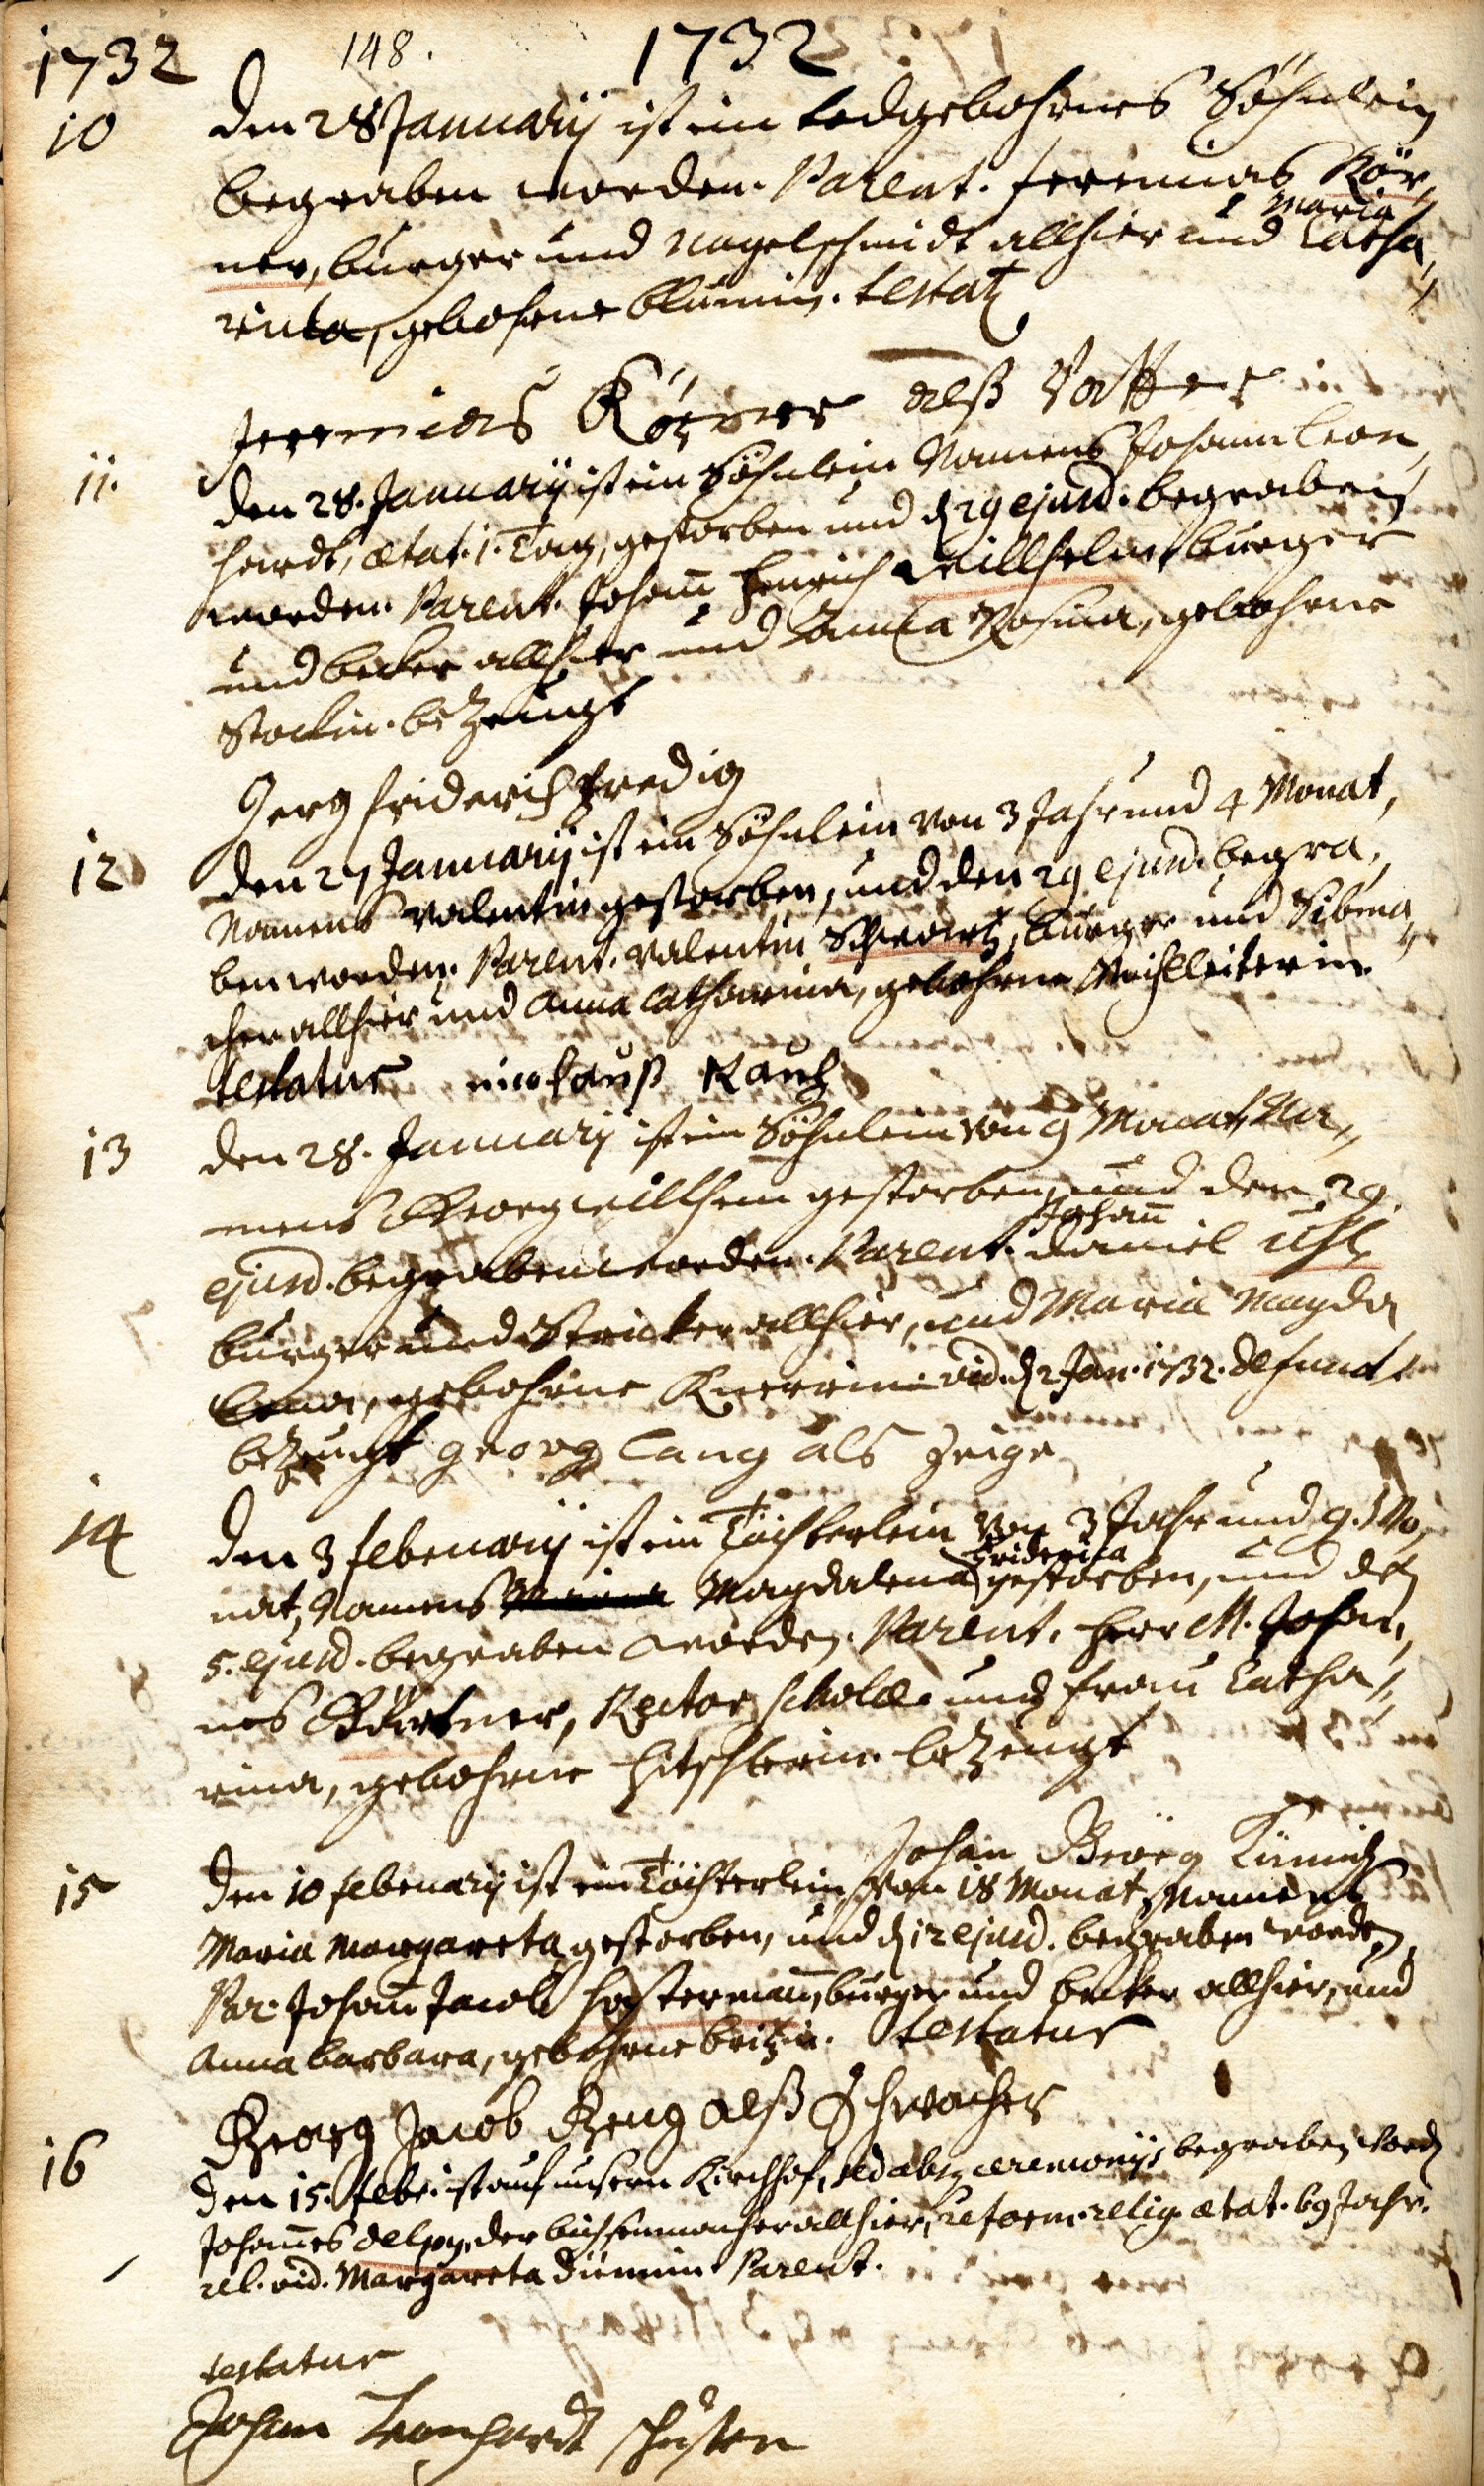 1732 148. 1732
10 Den 28 Januarij ist ein todgebohrnes Söhnlein
begraben worden. Parent. Jeremias Kör,
Maria
ner, burger und Nagelschmidt allhier und Catha,,
rina, gebohrne Blumin. testat
Jeremias Körner alß Vatter
11. Den 28. Januarij ist ein Söhnlein Namens Johann Leon,
hardt, ætat. 1. Tag, gestorben und d 29 ejusd. begraben
worden. Parent. Johann Henrich Willhelm burger
und becker allhier und Anna Rosina, gebohrne
Stockin. bezeugt
Gerg friderich
12 Den 27 Januarij ist ein Söhnlein von 3 Jahr und 4 Monat,
Namens Valentin gestorben, und den 29 ejusd. begra,
ben worden. Parent. Valentin Schwartz, burger und Sibma,,
cher allhier und Anna Catharina, gebohrne
testatur nicolauß Rauch
13 Den 28. Januarij ist ein Söhnlein von 9 Monat, Na,,
mens Georg willhem gestorben, und den 29.
Johann
ejusd. begraben worden. Parent. Daniel Uhl
burger und Stricker allhier, und Maria Magda
lena, gebohrne Knerrin vid. d 2 Jan. 1732. defunct.
bezeugt georg Lang als Zeige
14 Den 3 februarij ist ein Töchterlein von 3 Jahr und 9. Mo,
Friderica
nat, Namens Magdalena gestorben, und den
5. ejusd. begraben worden. Parent. Herr M. Johan,
nes Gärtner, Rector scholæ und Frau Catha,,
rina, gebohrne bezeugt
Johan Georg
15 Den 10 februarij ist ein Töchterlein von 18 Monat Namens
Maria Margareta gestorben, und d 12 ejusd. begraben worden
Par. Johann Jacob Hostermann, burger und becker allhier, und
Anna barbara, gebohrne britzin. testatur
Georg Jacob alß
16 Den 15. febr. ist auf unsern Kirchhof, sed absq ceremonijs begraben word
Johannes Delpy, der büchsenmacher allhier, reform. relig. ætat. 69 Jahr.
rel. vid. Margareta Parent.
testatur
Johan Leonhardt schuster